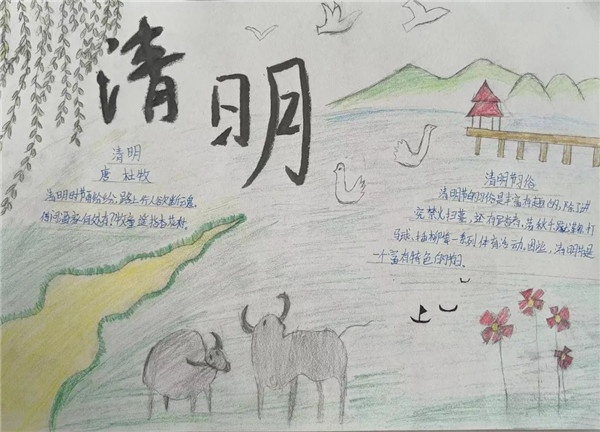 清明
清明
唐 杜牧
清明时节雨纷纷,路上行人欲断魂。
借问酒家何处有?牧童遥指杏花村。
清明节习俗
清明节的习俗是丰富有趣的,除了讲
究禁火扫墓,还有踏青、荡秋千、蹴鞠、打
马球、插柳等一系列体育活动。因此,清明节是
一个富有特色的节日。
上